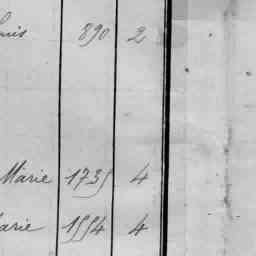 890 2
Marie 1735 4
arie 1554 4